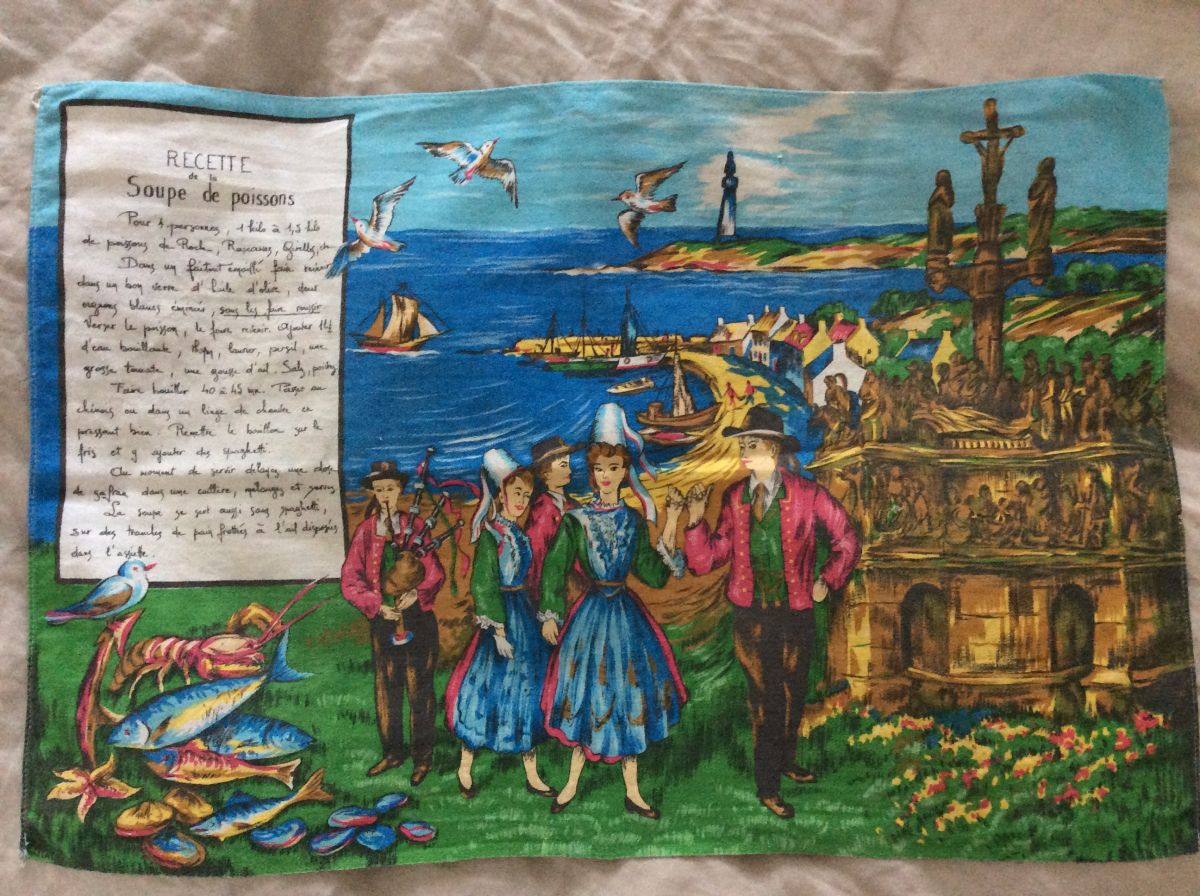 RECETTE
de la
Soupe de poissons
Pour 4 personnes, 1 kilo à 1,5 kilo
de poissons de Roche, Rascasses, Girelles, etc
Dans un faitout émaillé faire revenir
dans un bon verre d'huile d'olive, deux
oignons blancs émincés, sans les faire roussir
Verser le poisson, le faire revenir. Ajouter 1 l
d'eau bouillante, thym, laurier, persil, une
grosse tomate, une gousse d'ail. Salez, poivrez
Faire bouillir 40 à 45 mn. Passer au
chinois ou dans un linge de chanvre en
pressant bien. Remettre le bouillon sur le
feu et y ajouter des spaghetti.
Au moment de servir délayez une dose
de safran dans une cuillère, mélangez et servez
La soupe se sert aussi sans spaghetti,
sur des tranches de pain frottées à l'ail disposées
dans l'assiette.